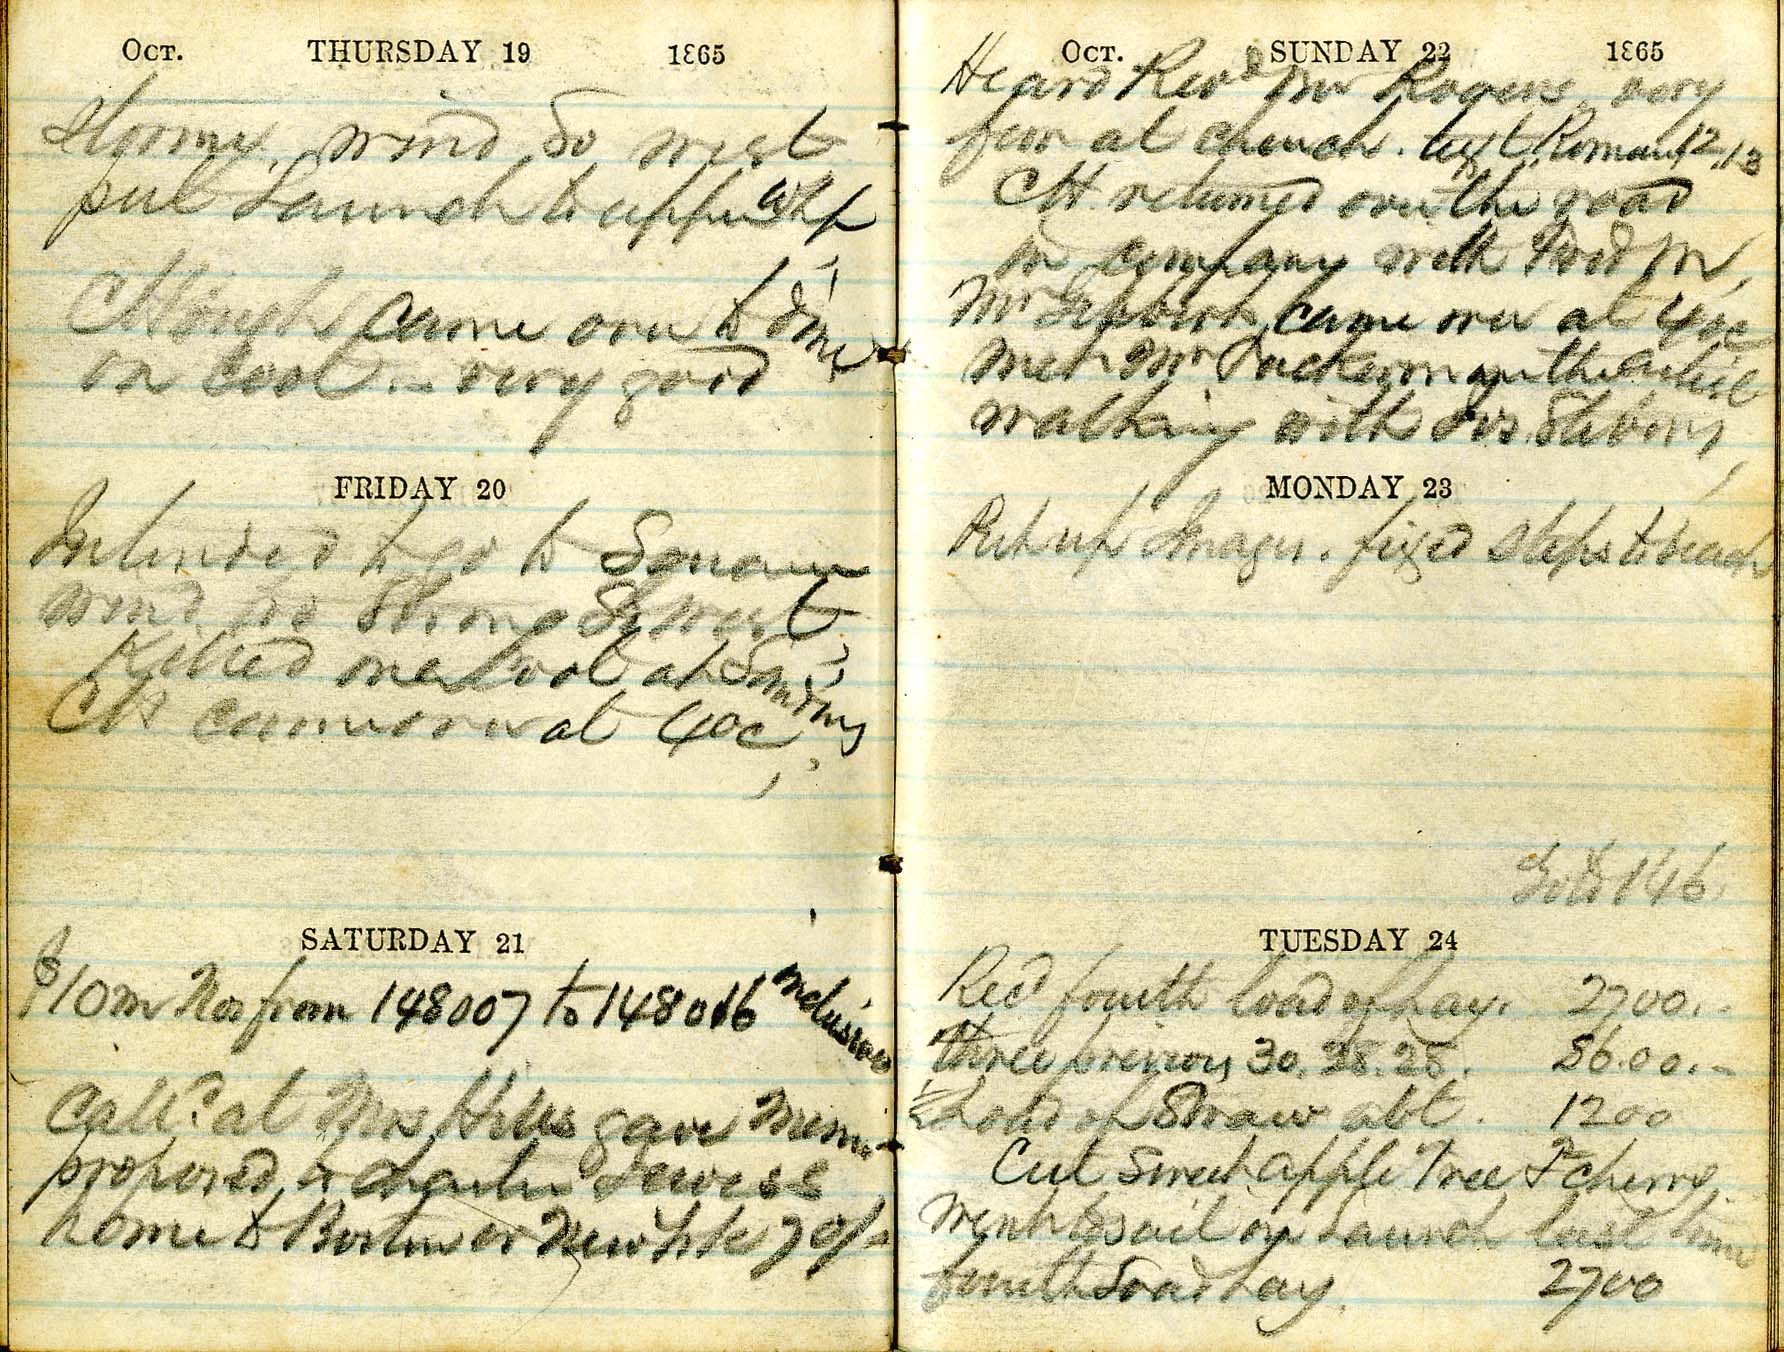 OCT. THURSDAY 19 1865
Stormy, wind So west
put Launch to upper whf
CH came over to dine
on Coot — very good
FRIDAY 20
Intended to go to
wind too Strong So west
Killed one Coot at Landing
CH came over at 4 oc
SATURDAY 21
$10m Nos from 148007 to 148016 inclusive
Call'd at Mrs Hills gave
proposed to
home to Boston or New York 7 o/o
OCT. SUNDAY 22 1865
Heard Revd Mr Rogers, very
few at church. text Romans 12, 13
CH returned over the road
in company with
Mr came over at 4 oc
met Mr Tuckerman on the
walking with
MONDAY 23
Put up Images. fixed steps to beach
Gold 146
TUESDAY 24
Recd fourth load of hay. 2700.-
three previous 30. 28. 28. 86.00.-
Load of Straw abt. 1200
Cut Sweet apple Tree & cherry
Went to sail in Launch last time
fourth Load hay. 2700